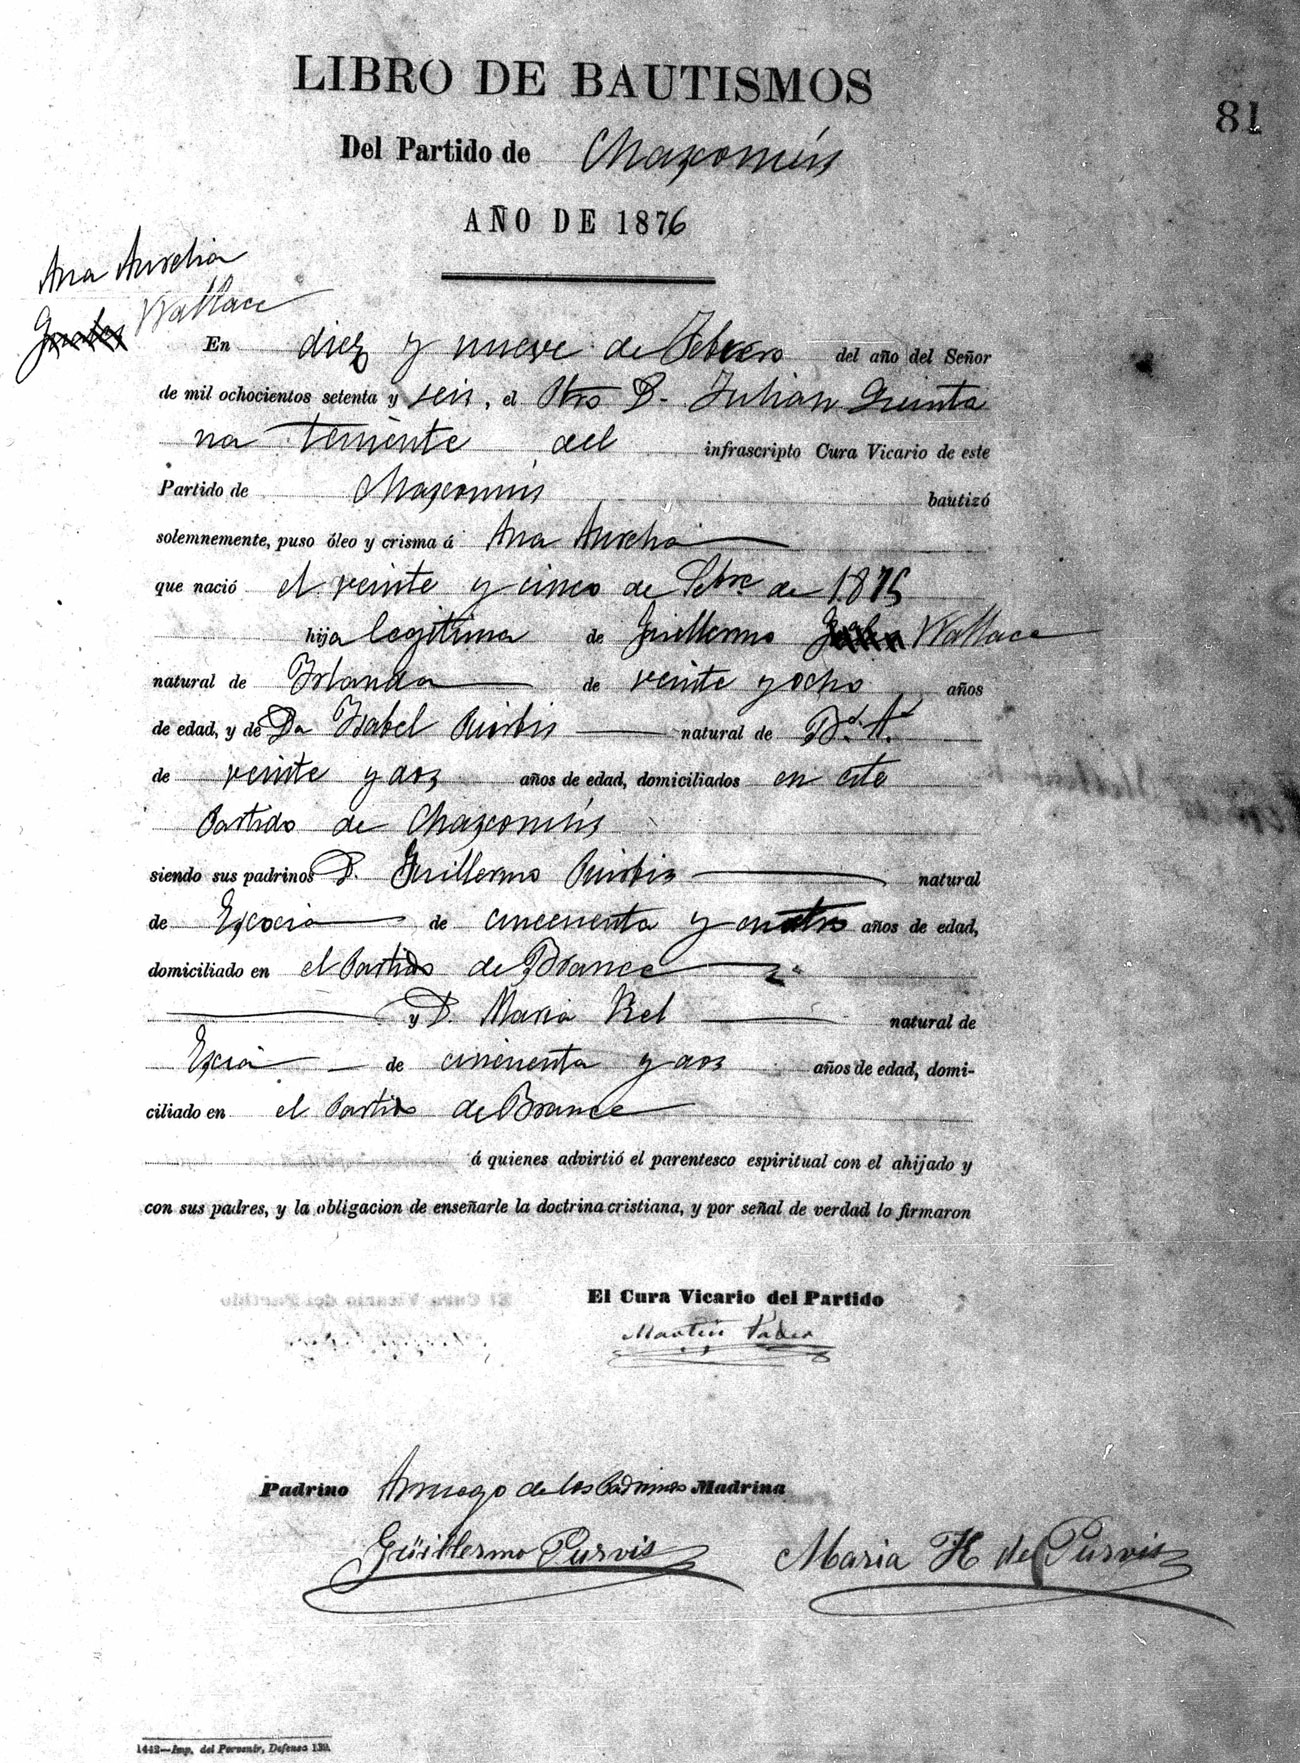 LIBRO DE BAUTISMOS
81
Del Partido de Chascomús
AÑO DE 1876
Ana Aurelia
Wallace
En diez y nueve de Febrero del año del Señor
de mil ochocientos setenta y seis, el Pbro D. Julian Quinta
na teniente del infrascripto Cura Vicario de este
Partido de Chascomús bautizó
solemnemente, puso óleo y crisma á Ana Aurelia
que nació el veinte y cinco de Sebre de 1875
hija legitima de Guillermo Wallace
natural de Irlanda de veinte y ocho años
de edad, y de Da Isabel natural de Bs. As.
de veinte y dos años de edad, domiciliados en este
Partido de Chascomús
siendo sus padrinos D. Guillermo natural
de Escocia de cincuenta y cuatro años de edad,
domiciliado en el Partido de
y D. Maria natural de
de cincuenta y dos años de edad, domi-
ciliado en el Partido de
á quienes advirtió el parentesco espiritual con el ahijado y
con sus padres, y la obligacion de enseñarle la doctrina cristiana, y por señal de verdad lo firmaron
El Cura Vicario del Partido
Martin
Padrino Arruego de los Padrinos Madrina
Guillermo Purvis Maria H de Purvis
1442—Imp. del Porvenir, Defensa 139.